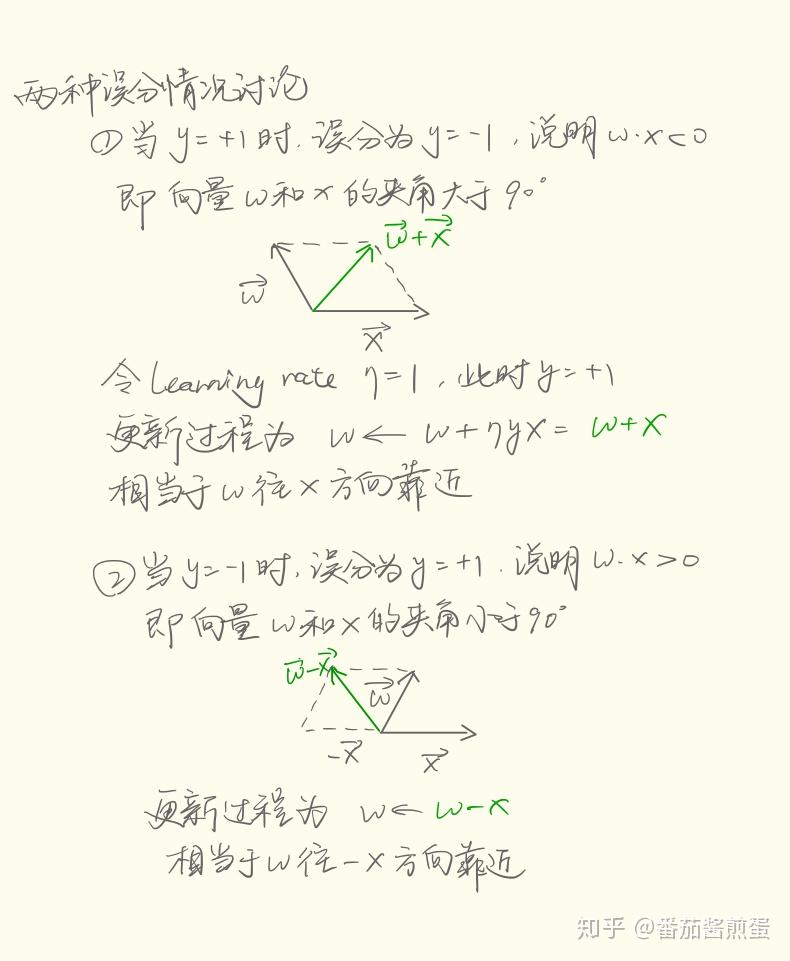 两种误分情况讨论
①当 y=+1时,误分为y=-1,说明w·x<0
即向量w和x的夹角大于90°
w+x
w
x
令learning rate η=1,此时y=+1
更新过程为 w← w+ηyx= w+x
相当于w往x方向靠近
②当y=-1时,误分为y=+1.说明w·x>0
即向量w和x的夹角小于90°
w-x
w
-x
x
更新过程为 w← w-x
相当于w往-x方向靠近
知乎 @番茄酱煎蛋